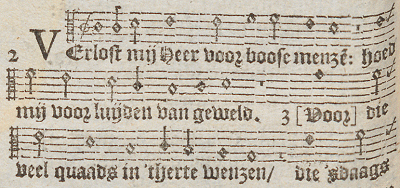 2 VErlost mij Heer voor boose menzẽ: hoed
mij voor luijden van geweld. 3 [Voor] die
veel quaads in 'therte wenzen/ die 'sdaags